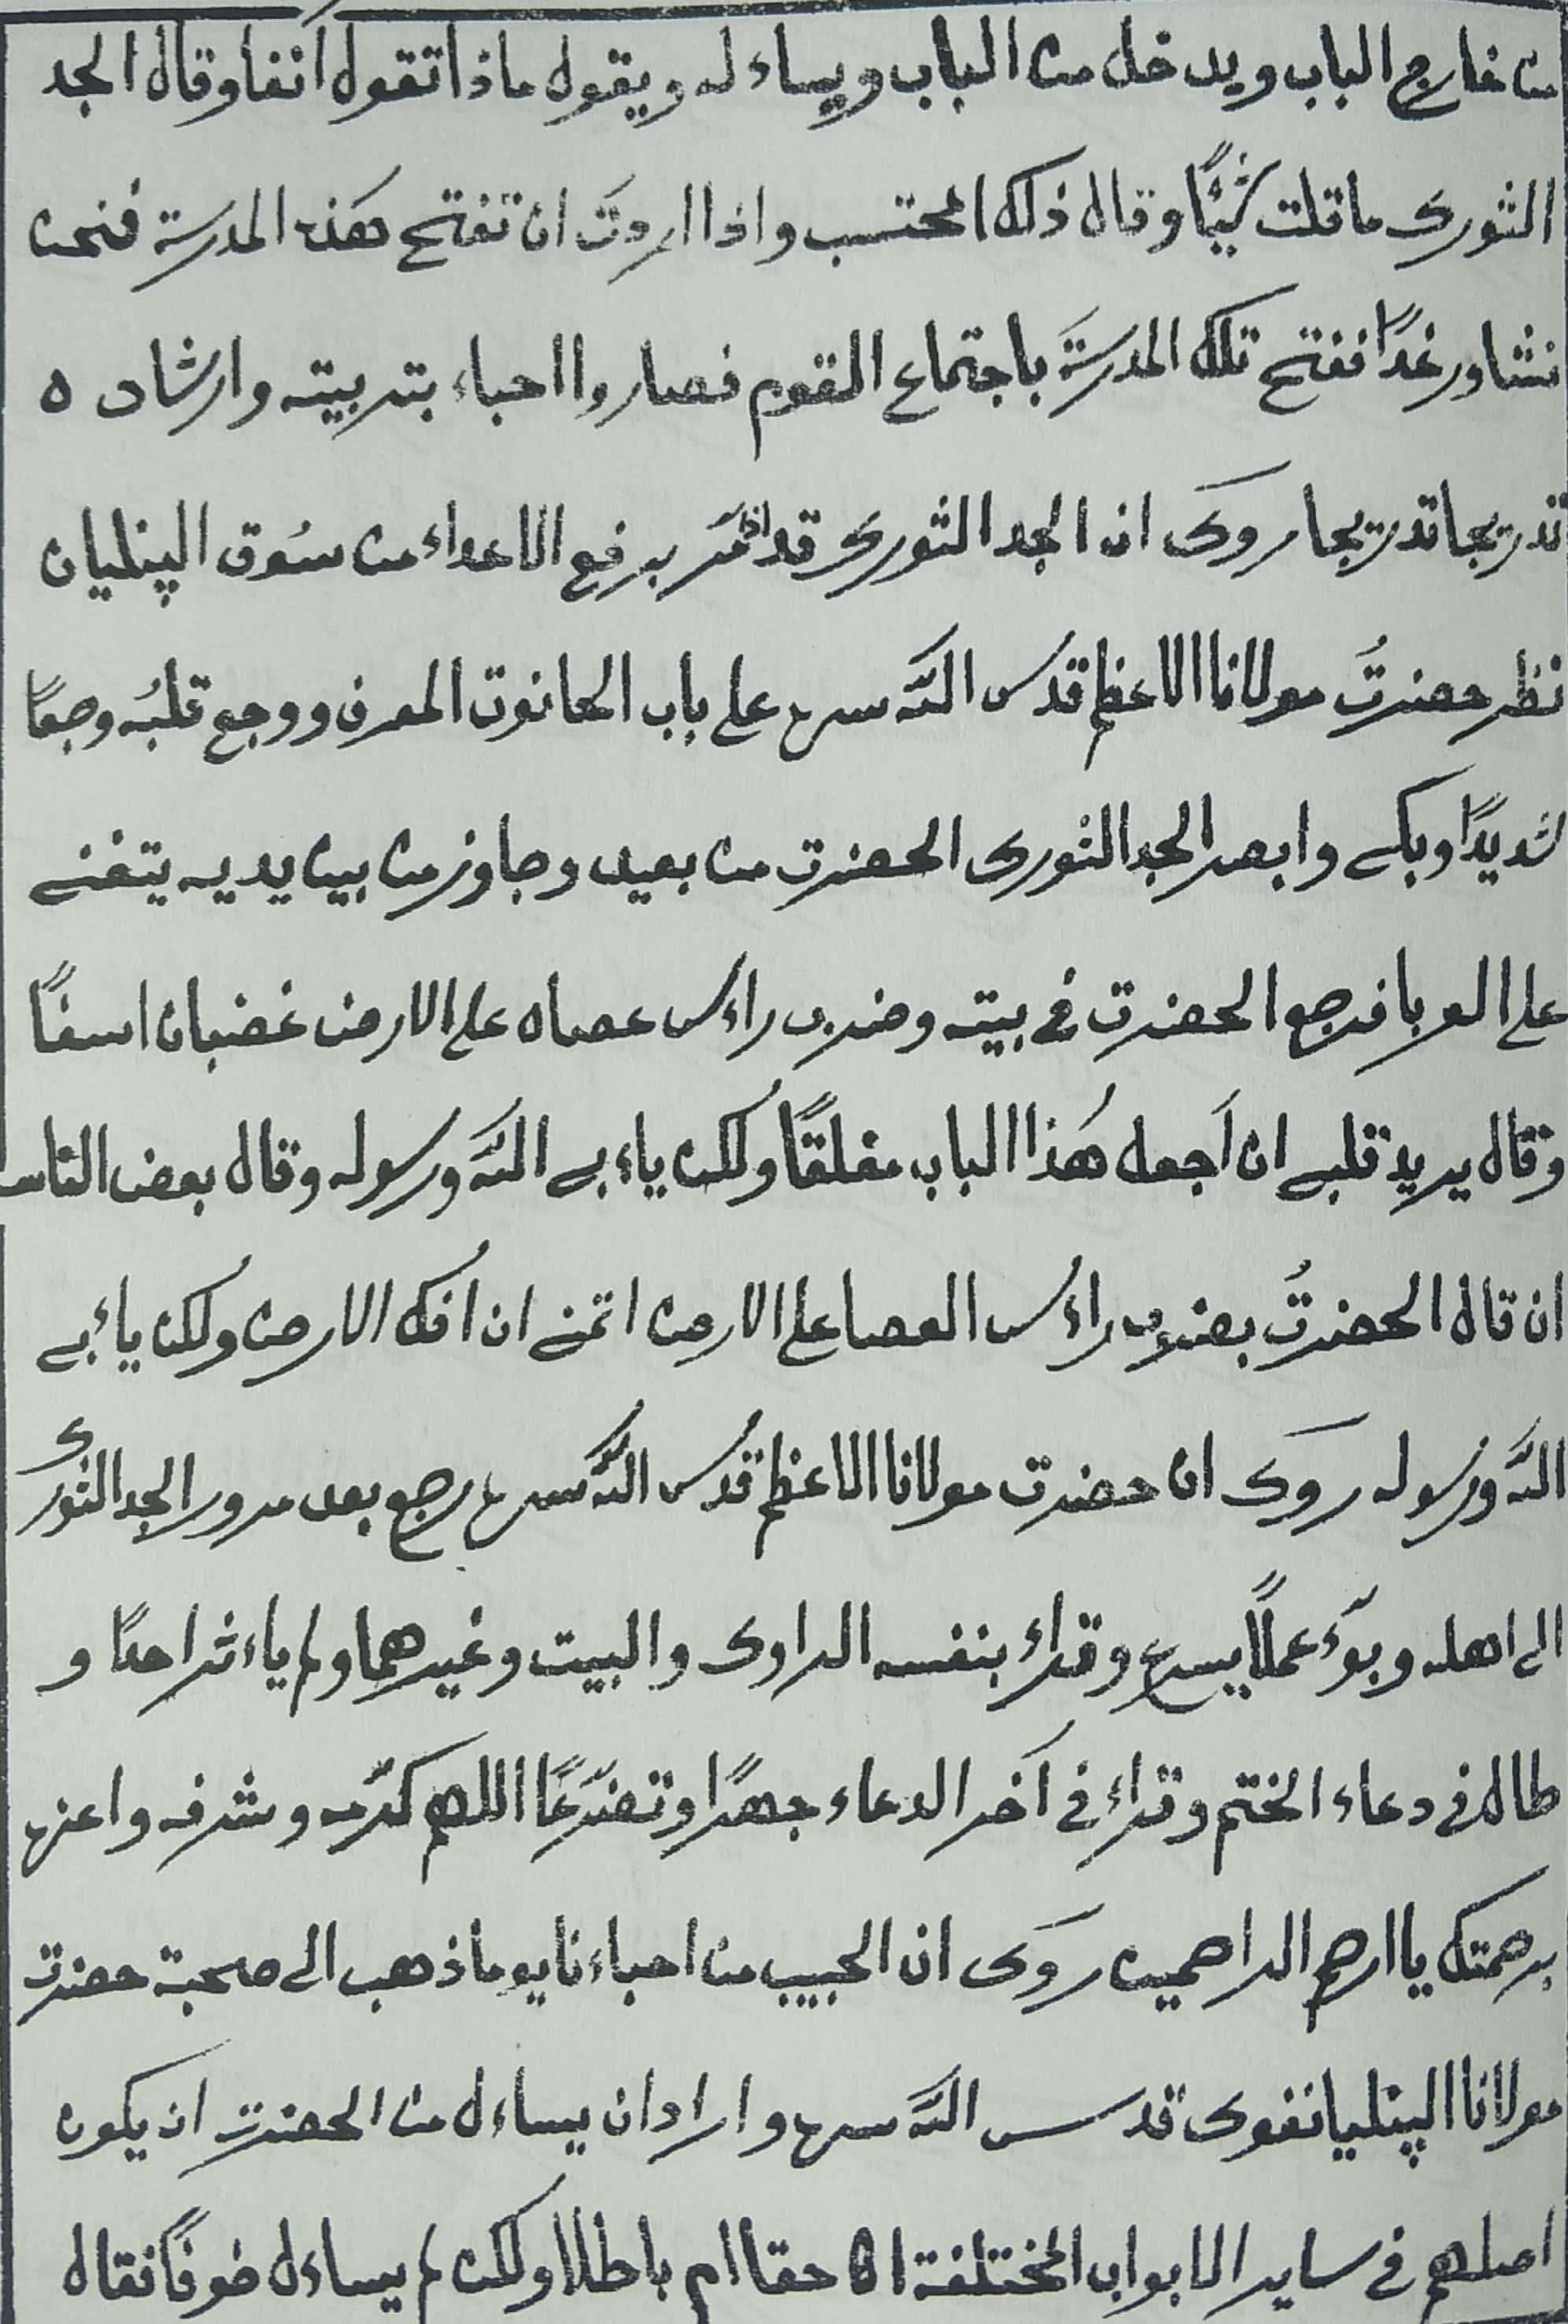 من خارج الباب ويدخل من الباب ويساءله ويقول ماذا تقول آنفا وقال الجد
الثورى ما قلت شئًا وقال ذلك المحتسب واذا اردتَ ان تفتح هٰذه المدرسة فنحن
نشاور غدًا ففتح تلك المدرسةَ باجتماع القوم فصاروا احباء بتربيته وارشاده
تدريجا تدريجا روى ان الجد الثورى قد امر برفع الاعداء من سُوق الپنليان
نظر حضرتُ مولانا الاعظم قدس اللّٰه سره على باب الحانوت المعرف ووجع قلبُه وجعًا
شديدًا وبكے وابصر الجد الثورى الحضرت من بعيد وجاوز من بين يديه يتغنے
على العربا فرجع الحضرت فى بيته وضرب راءس عصاه على الارض غضبان اسفًا
وقال يريد قلبے ان اَجعل هٰذا الباب مغلقًا ولكن ياءبے اللّٰه ورسوله وقال بعض الناس
ان قال الحضرتُ بضرب راءس العصا على الارض اتمنے ان افك الارض ولكن ياءبے
اللّٰه ورسوله روى ان حضرت مولانا الاعظم قدس اللّٰه سره رجع بعد مرور الجد الثورى
الى اهله وبوّء عملًا يسره وقراء بنفسه الراوى والبيت وغيرهما ولم ياءثر احدًا و
طال فى دعاء الختم وقراء فى آخر الدعاء جهرًا وتضرّعًا اللهم كرّمه وشرفه واعزه
برحمتك يا ارحم الراحمين روى ان الحبيب من احباءنا يوما ذهب الى صحبة حضرت
مولانا الپنليانفوى قدس اللّٰه سره واراد ان يساءل من الحضرت ان يكون
اصلهم فى ساير الابواب المختلفة حقا ام باطلا ولكن لم يساءل خوفًا فقال